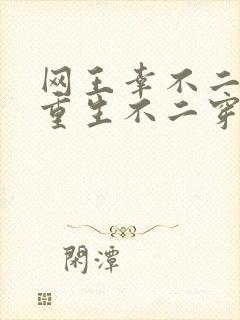 网王幸不二
重生不二穿
閑潭